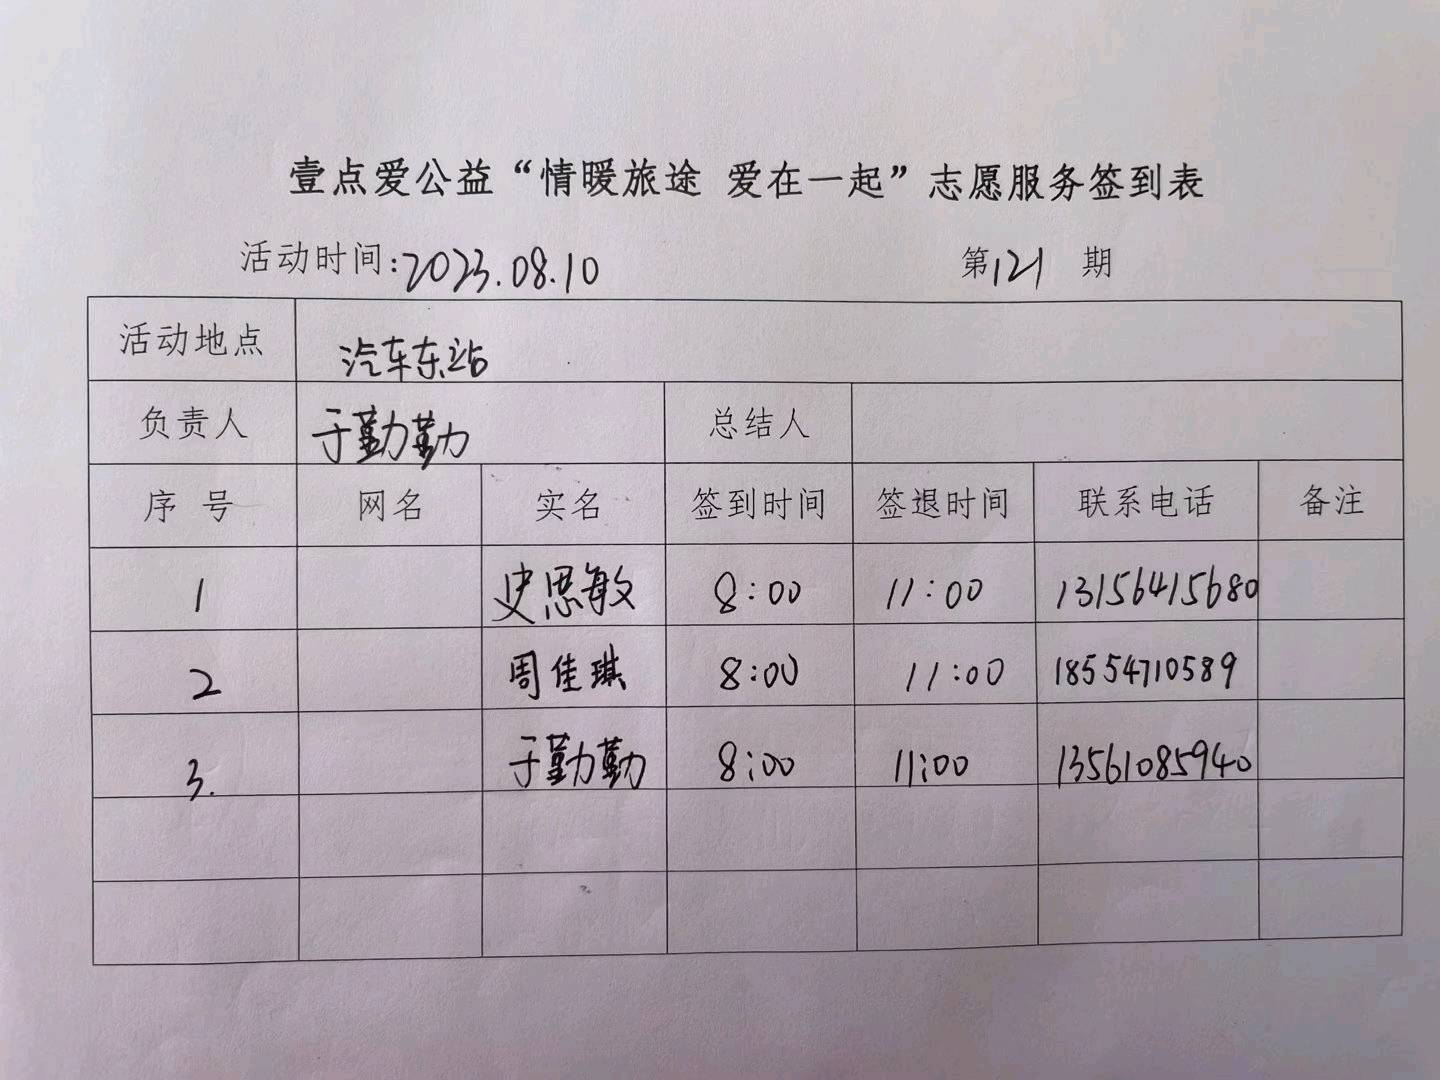 壹点爱公益“情暖旅途 爱在一起”志愿服务签到表
活动时间:2023.08.10 第121期
活动地点 汽车东站
负责人 于勤勤 总结人
序号 网名 实名 签到时间 签退时间 联系电话 备注
1 史思敏 8:00 11:00 13156415680
2 周佳琪 8:00 11:00 18554710589
3. 于勤勤 8:00 11:00 13561085940